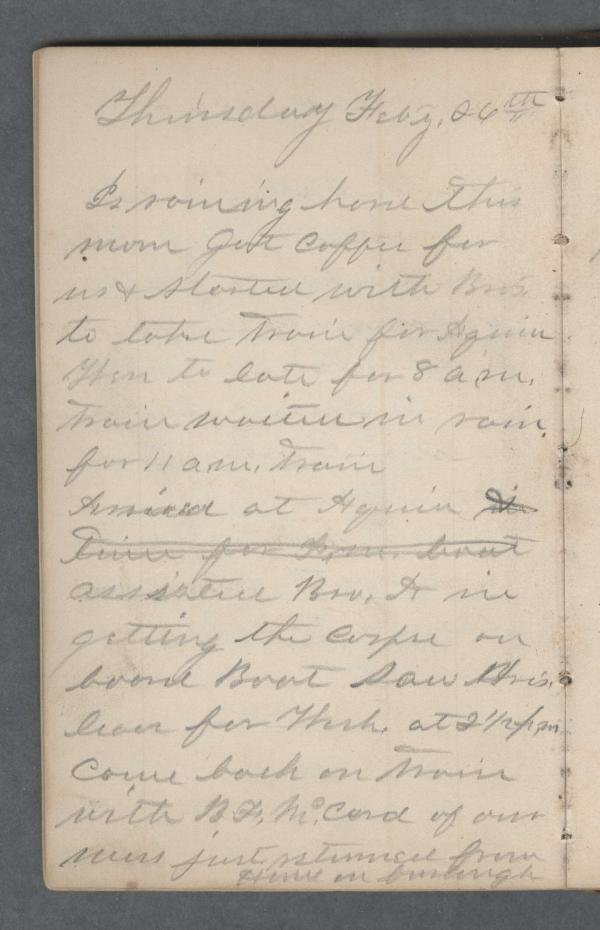 Thursday Feby. 26th
Is raining hard this
morn Got Coffee for
us & started with Bro's
to take train for Aquia
Were to late for 8 a.m.
train waited in rain
for 11 a.m. train
Arrived at Aquia in
time for P.m. boat
assisted Bro. H in
getting the Corpse on
board Boat Saw
leave for Wash. at 2 1/2 p.m
Come back on train
with B.F. McCord of our
mess just returned from
Home on furlough